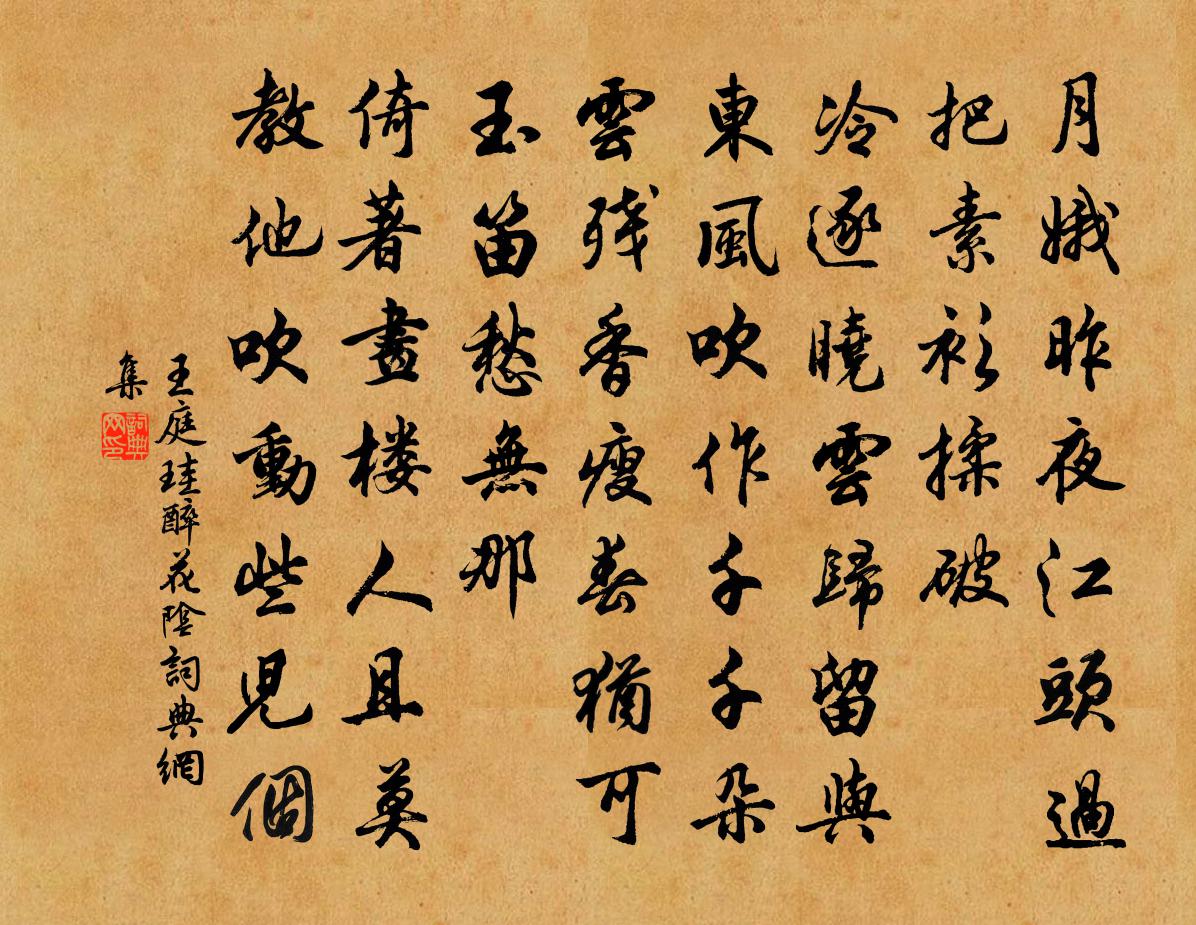 月娥昨夜江頭過
把素衫揉破
冷逐曉雲歸留與
東風吹作千千朵
雲殘香瘦春猶可
玉笛愁無那
倚著畫楼人且莫
教他吹動些児個
王庭珪醉花陰詞典網
集
詞典网印